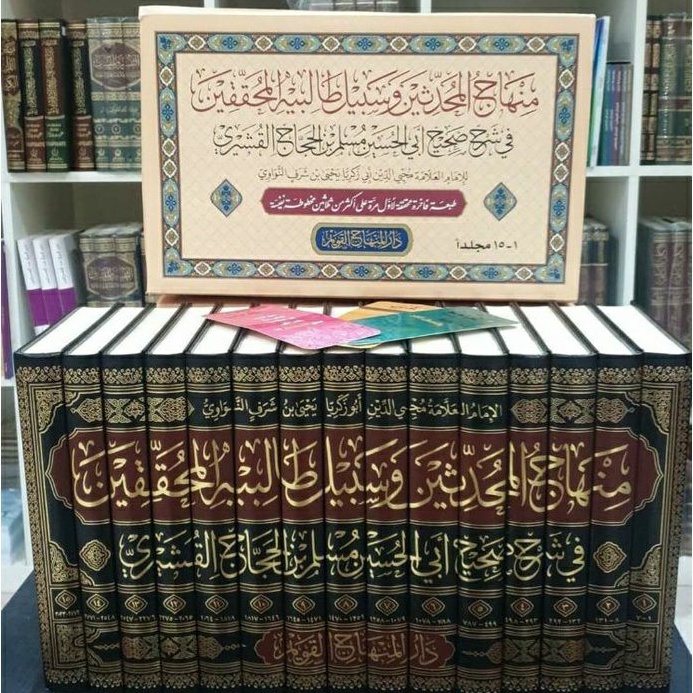 منهاج المحدثين وسبيل طالبيه المحققين
في شرح صحيح أبي الحسين مسلم بن الحجاج القشيري
للإمام العلامة محيي الدين أبي زكريا يحيى بن شرف النواوي
طبعة فاخرة محققة لأول مرة على أكثر من ثلاثين مخطوطة نفيسة
دار المنهاج القويم
١-١٥ مجلداً
الإمام العلامة محيي الدين أبو زكريا يحيى بن شرف النواوي
منهاج المحدثين وسبيل طالبيه المحققين
في شرح صحيح أبي الحسين مسلم بن الحجاج القشيري
١ ٢ ٣ ٤ ٥ ٦ ٧ ٨ ٩ ١٠ ١١ ١٢ ١٣ ١٤ ١٥
دار المنهاج القويم